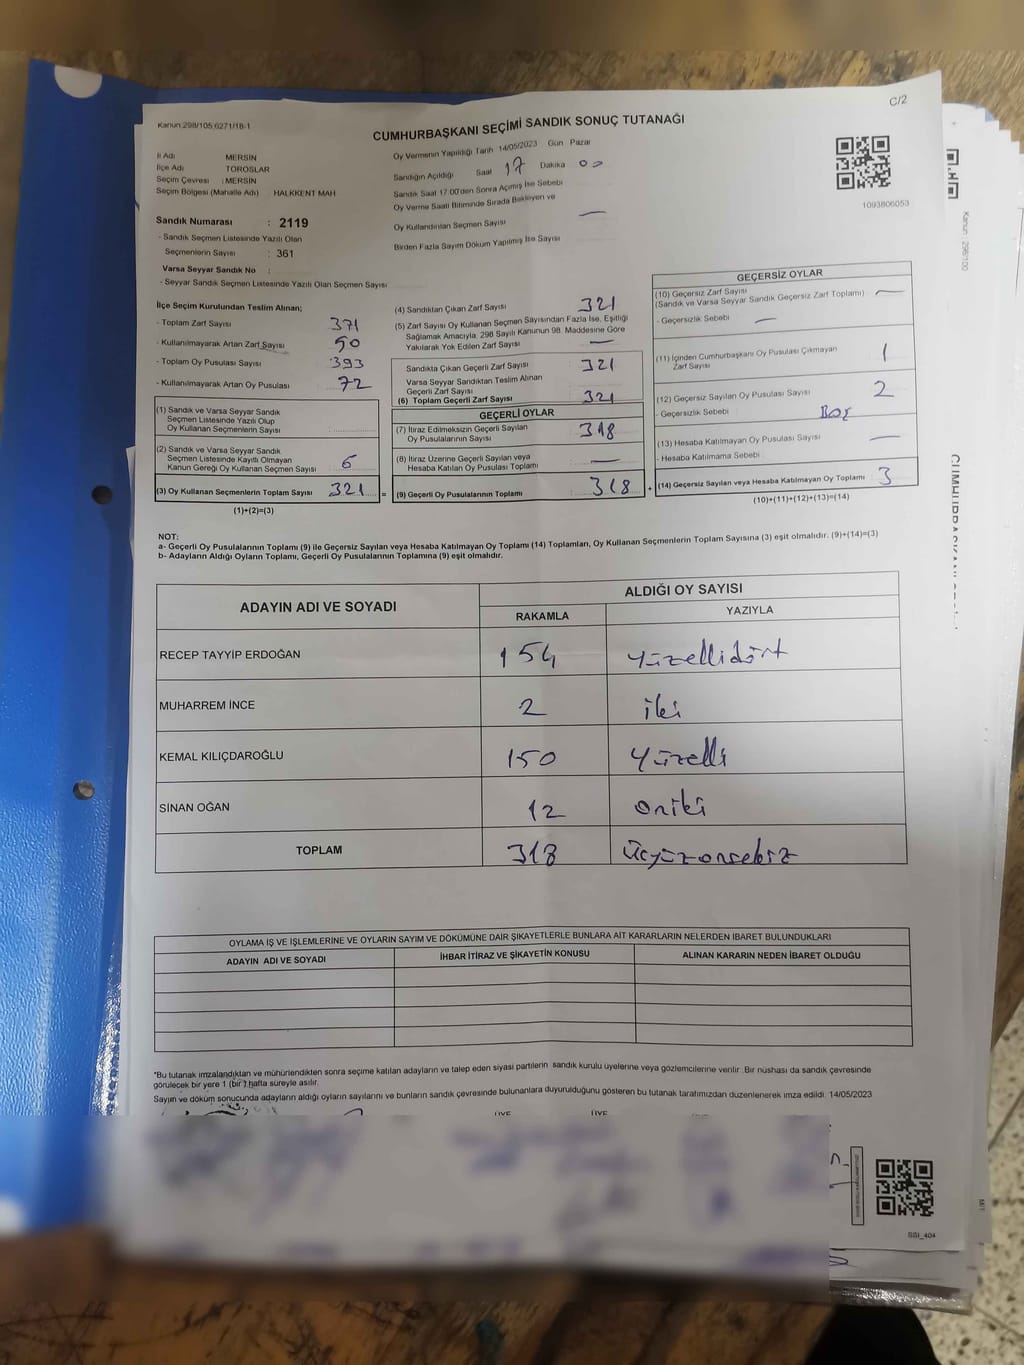 C/2
Kanun:298/105,6271/18-1
CUMHURBAŞKANI SEÇİMİ SANDIK SONUÇ TUTANAĞI
İl Adı MERSİN
İlçe Adı TOROSLAR
Seçim Çevresi : MERSİN
Seçim Bölgesi (Mahalle Adı) HALKKENT MAH
Sandık Numarası : 2119
- Sandık Seçmen Listesinde Yazılı Olan
Seçmenlerin Sayısı : 361
Varsa Seyyar Sandık No :
- Seyyar Sandık Seçmen Listesinde Yazılı Olan Seçmen Sayısı
Oy Vermenin Yapıldığı Tarih 14/05/2023 Gün Pazar
Sandığın Açıldığı Saat 17 Dakika 00
Sandık Saat 17.00'den Sonra Açılmış İse Sebebi
Oy Verme Saati Bitiminde Sırada Bekleyen ve
Oy Kullandırılan Seçmen Sayısı —
Birden Fazla Sayım Döküm Yapılmış İse Sayısı
1093806053
İlçe Seçim Kurulundan Teslim Alınan;
- Toplam Zarf Sayısı 371
- Kullanılmayarak Artan Zarf Sayısı 50
- Toplam Oy Pusulası Sayısı 393
- Kullanılmayarak Artan Oy Pusulası 72
(1) Sandık ve Varsa Seyyar Sandık
Seçmen Listesinde Yazılı Olup
Oy Kullanan Seçmenlerin Sayısı
(2) Sandık ve Varsa Seyyar Sandık
Seçmen Listesinde Kayıtlı Olmayan
Kanun Gereği Oy Kullanan Seçmen Sayısı 6
(3) Oy Kullanan Seçmenlerin Toplam Sayısı 321 =
(1)+(2)=(3)
(4) Sandıktan Çıkan Zarf Sayısı 321
(5) Zarf Sayısı Oy Kullanan Seçmen Sayısından Fazla İse, Eşitliği
Sağlamak Amacıyla, 298 Sayılı Kanunun 98. Maddesine Göre
Yakılarak Yok Edilen Zarf Sayısı —
Sandıkta Çıkan Geçerli Zarf Sayısı : 321
Varsa Seyyar Sandıktan Teslim Alınan
Geçerli Zarf Sayısı
(6) Toplam Geçerli Zarf Sayısı 321
GEÇERLİ OYLAR
(7) İtiraz Edilmeksizin Geçerli Sayılan
Oy Pusulalarının Sayısı : 318
(8) İtiraz Üzerine Geçerli Sayılan veya
Hesaba Katılan Oy Pusulası Toplamı —
(9) Geçerli Oy Pusulalarının Toplamı : 318 +
GEÇERSİZ OYLAR
(10) Geçersiz Zarf Sayısı
(Sandık ve Varsa Seyyar Sandık Geçersiz Zarf Toplamı) —
- Geçersizlik Sebebi : —
(11) İçinden Cumhurbaşkanı Oy Pusulası Çıkmayan
Zarf Sayısı 1
(12) Geçersiz Sayılan Oy Pusulası Sayısı 2
- Geçersizlik Sebebi : Boş
(13) Hesaba Katılmayan Oy Pusulası Sayısı —
- Hesaba Katılmama Sebebi :
(14) Geçersiz Sayılan veya Hesaba Katılmayan Oy Toplamı : 3
(10)+(11)+(12)+(13)=(14)
NOT:
a- Geçerli Oy Pusulalarının Toplamı (9) ile Geçersiz Sayılan veya Hesaba Katılmayan Oy Toplamı (14) Toplamları, Oy Kullanan Seçmenlerin Toplam Sayısına (3) eşit olmalıdır. (9)+(14)=(3)
b- Adayların Aldığı Oyların Toplamı, Geçerli Oy Pusulalarının Toplamına (9) eşit olmalıdır.
ADAYIN ADI VE SOYADI ALDIĞI OY SAYISI
RAKAMLA YAZIYLA
RECEP TAYYİP ERDOĞAN 154 yüzellidört
MUHARREM İNCE 2 iki
KEMAL KILIÇDAROĞLU 150 yüzelli
SİNAN OĞAN 12 oniki
TOPLAM 318 üçyüzonsekiz
OYLAMA İŞ VE İŞLEMLERİNE VE OYLARIN SAYIM VE DÖKÜMÜNE DAİR ŞİKAYETLERLE BUNLARA AİT KARARLARIN NELERDEN İBARET BULUNDUKLARI
ADAYIN ADI VE SOYADI İHBAR İTİRAZ VE ŞİKAYETİN KONUSU ALINAN KARARIN NEDEN İBARET OLDUĞU
"Bu tutanak imzalandıktan ve mühürlendikten sonra seçime katılan adayların ve talep eden siyasi partilerin sandık kurulu üyelerine veya gözlemcilerine verilir. Bir nüshası da sandık çevresinde
görülecek bir yere 1 (bir ) hafta süreyle asılır.
Sayım ve döküm sonucunda adayların aldığı oyların sayılarını ve bunların sandık çevresinde bulunanlara duyurulduğunu gösteren bu tutanak tarafımızdan düzenlenerek imza edildi. 14/05/2023
ÜYE ÜYE
SSI_404
Kanun : 298/100